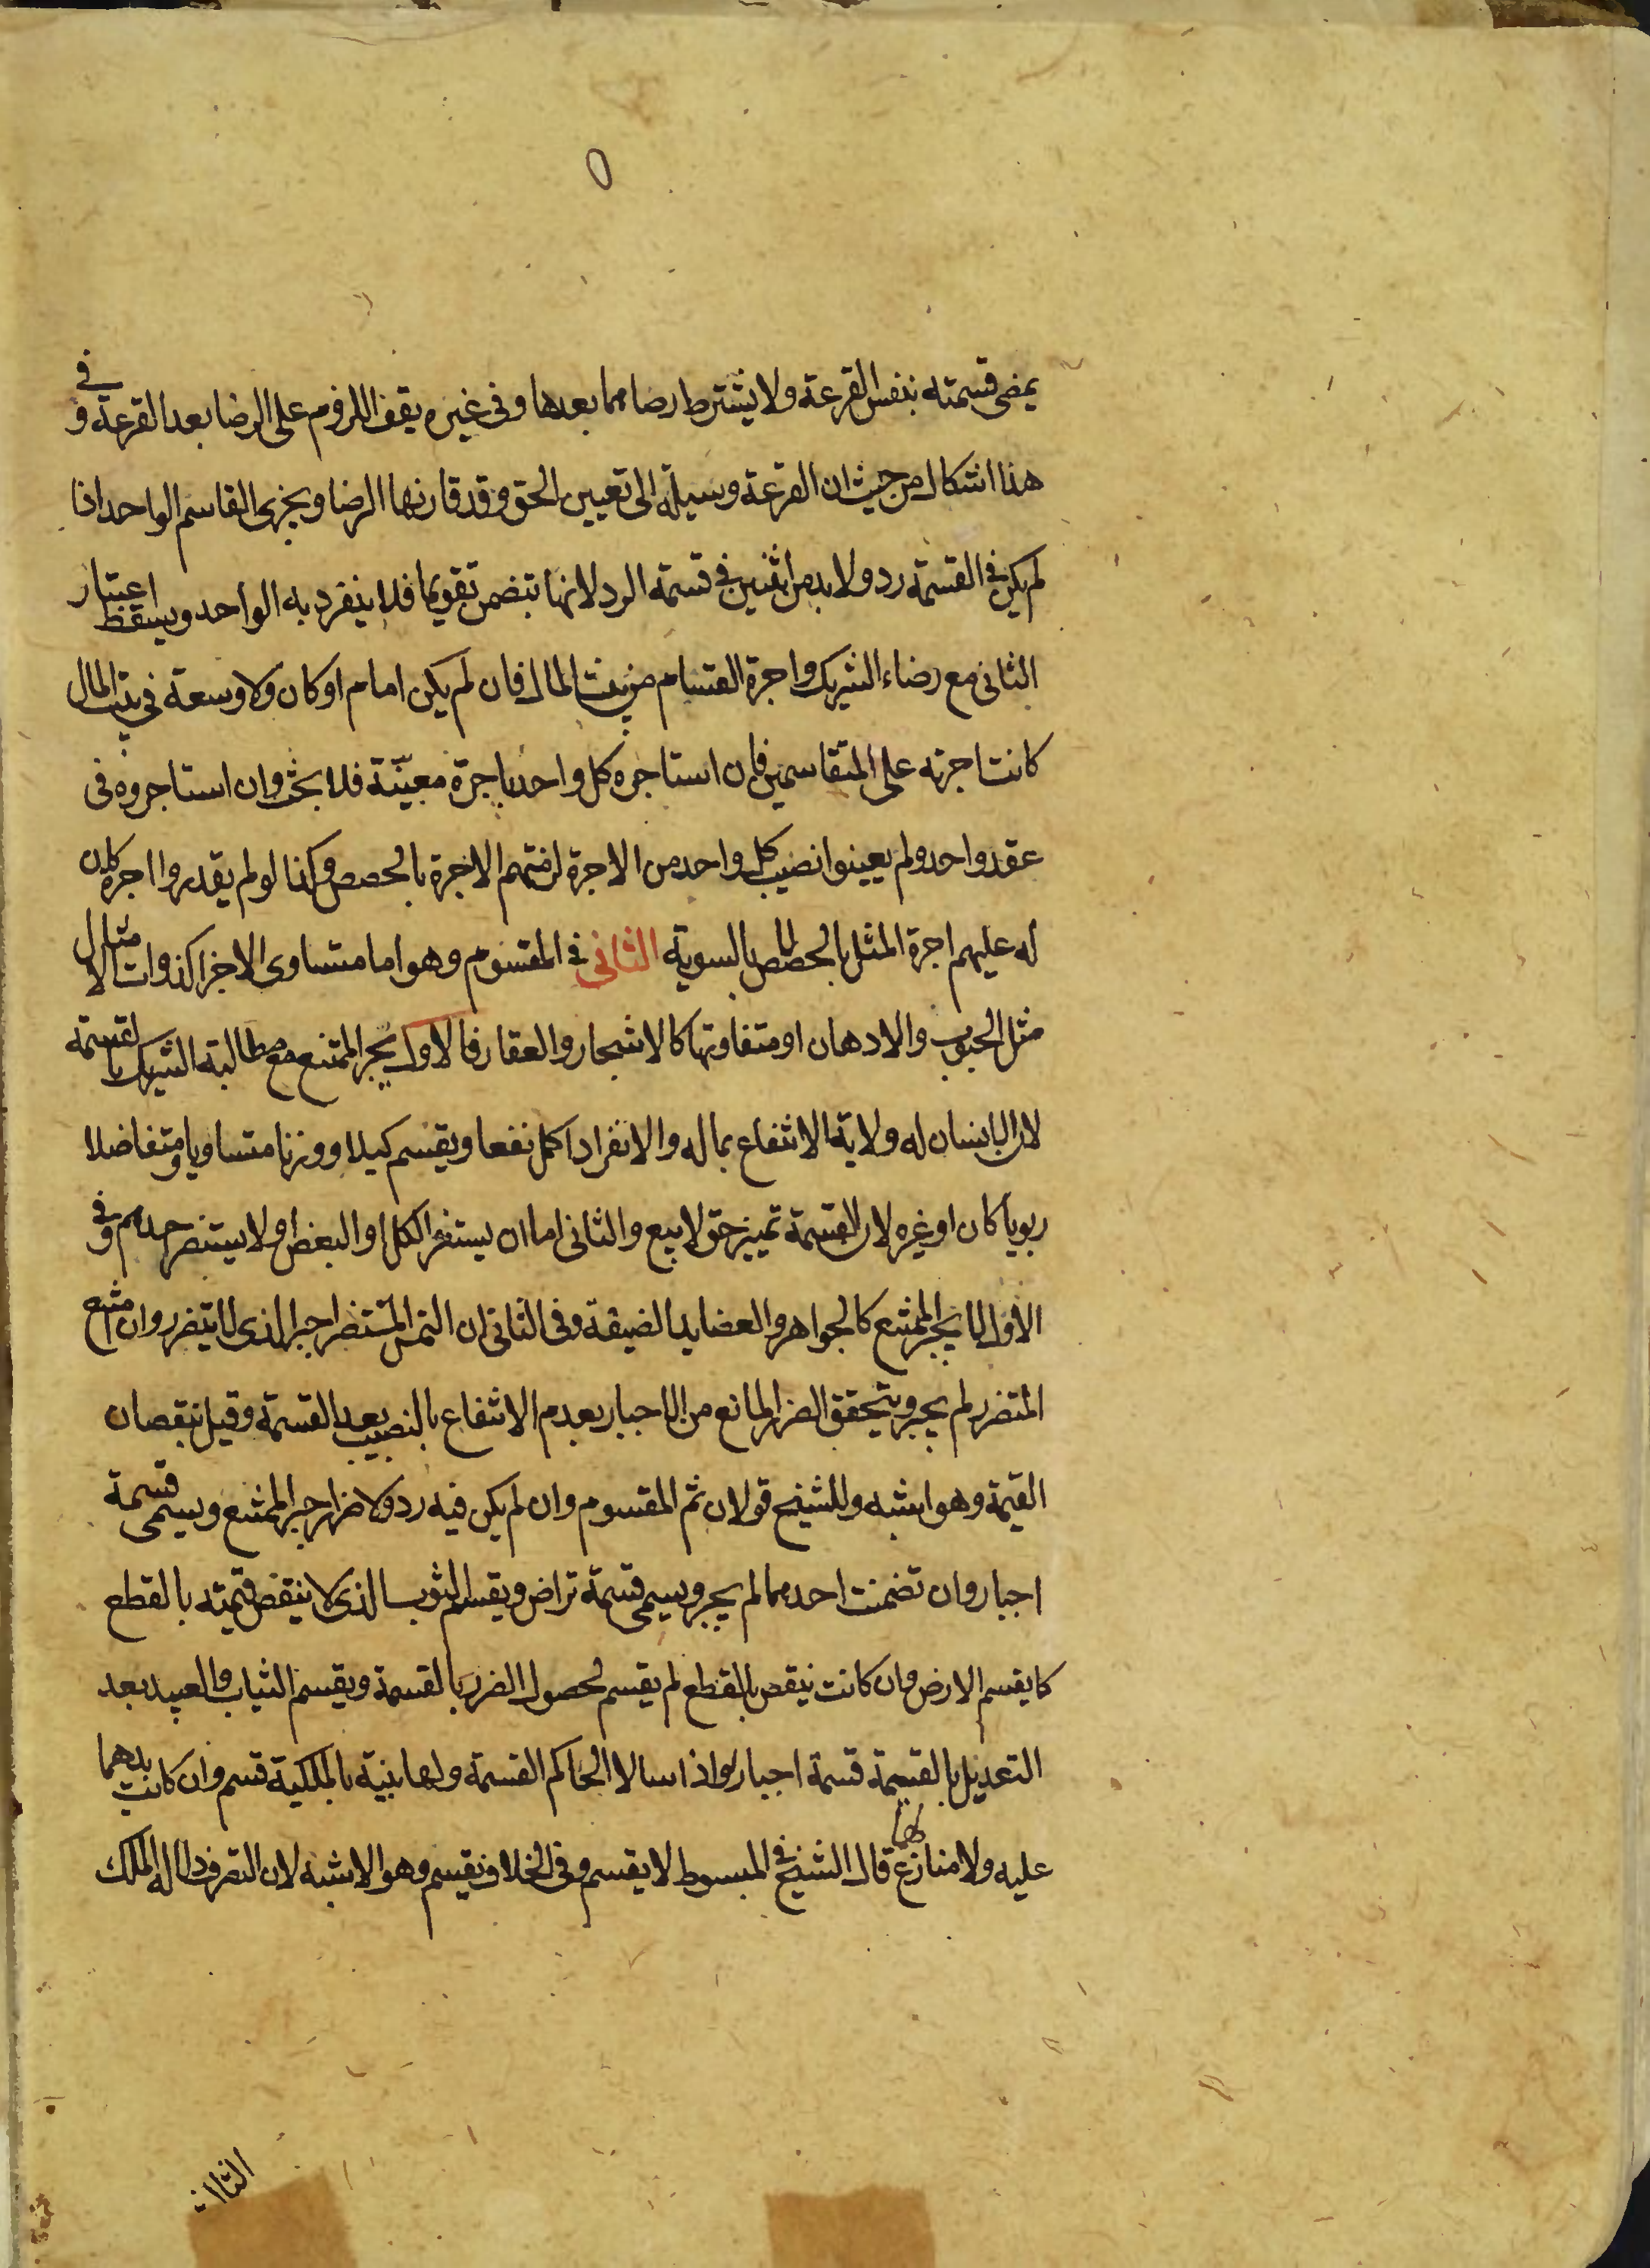 يمضى قسمته بنفس القرعة ولا يشترط رضاهما بعدها وفى غيره يقف اللزوم على الرضا بعد القرعة وفى
هذا اشكال من حيث ان القرعة وسيلة الى تعيين الحق وقد قارنها الرضا ويجزى القاسم الواحد اذا
لم يكن فى القسمة رد ولا بد من اثنين فى قسمة الرد لانها تتضمن تقويما فلا ينفرد به الواحد ويسقط اعتبار
الثانى مع رضاء الشريك واجرة القسام من بيت المال فان لم يكن امام او كان ولا وسعة فى بيت المال
كانت اجرته على المتقاسمين فان استاجره كل واحد باجرة معينة فلا بحث وان استاجروه فى
عقد واحد ولم يعينوا نصيب كل واحد من الاجرة لزمتهم الاجرة بالحصص وكذا لو لم يقدروا اجرة كان
له عليهم اجرة المثل بالحصص لا بالسوية الثانى فى المقسوم وهو اما متساوى الاجزا كذوات الامثال
مثل الحبوب والادهان او متفاوتها كالاشجار والعقار فالاول يجبر الممتنع مع مطالبة الشريك بالقسمة
لان الانسان له ولاية الانتفاع بماله والانفراد اكمل نفعا ويقسم كيلا ووزنا متساويا ومتفاضلا
ربويا كان او غيره لان القسمة تميز حق لا بيع والثانى اما ان يستضر الكل او البعض او لا يستضر احدهم وفى
الاول لا يجبر الممتنع كالجواهر والعضايد الضيقة وفى الثانى ان التمس المستضر اجبر الذى لا يتضرر وان امتنع
المتضرر لم يجبر ويتحقق الضرر المانع من الاجبار بعدم الانتفاع بالنصيب بعد القسمة وقيل بنقصان
القيمة وهو اشبه وللشيخ قولان ثم المقسوم وان لم يكن فيه رد ولا ضرار اجبر الممتنع ويسمى قسمة
اجبار وان تضمنت احدهما لم يجبر ويسمى قسمة تراض ويقسم الثوب الذى لا ينقض قيمته بالقطع
كما يقسم الارض وان كانت ينقص بالقطع لم يقسم لحصول الضرر بالقسمة ويقسم الثياب والعبيد بعد
التعديل بالقيمة قسمة اجبار واذا سالا الحاكم القسمة ولها بنية بالملكية قسم وان كانت يدهما
عليه ولا منازع لهما قال الشيخ فى المبسوط لا يقسم وفى الخلاف يقسم وهو الاشبه لان التصرف دلالة الملك